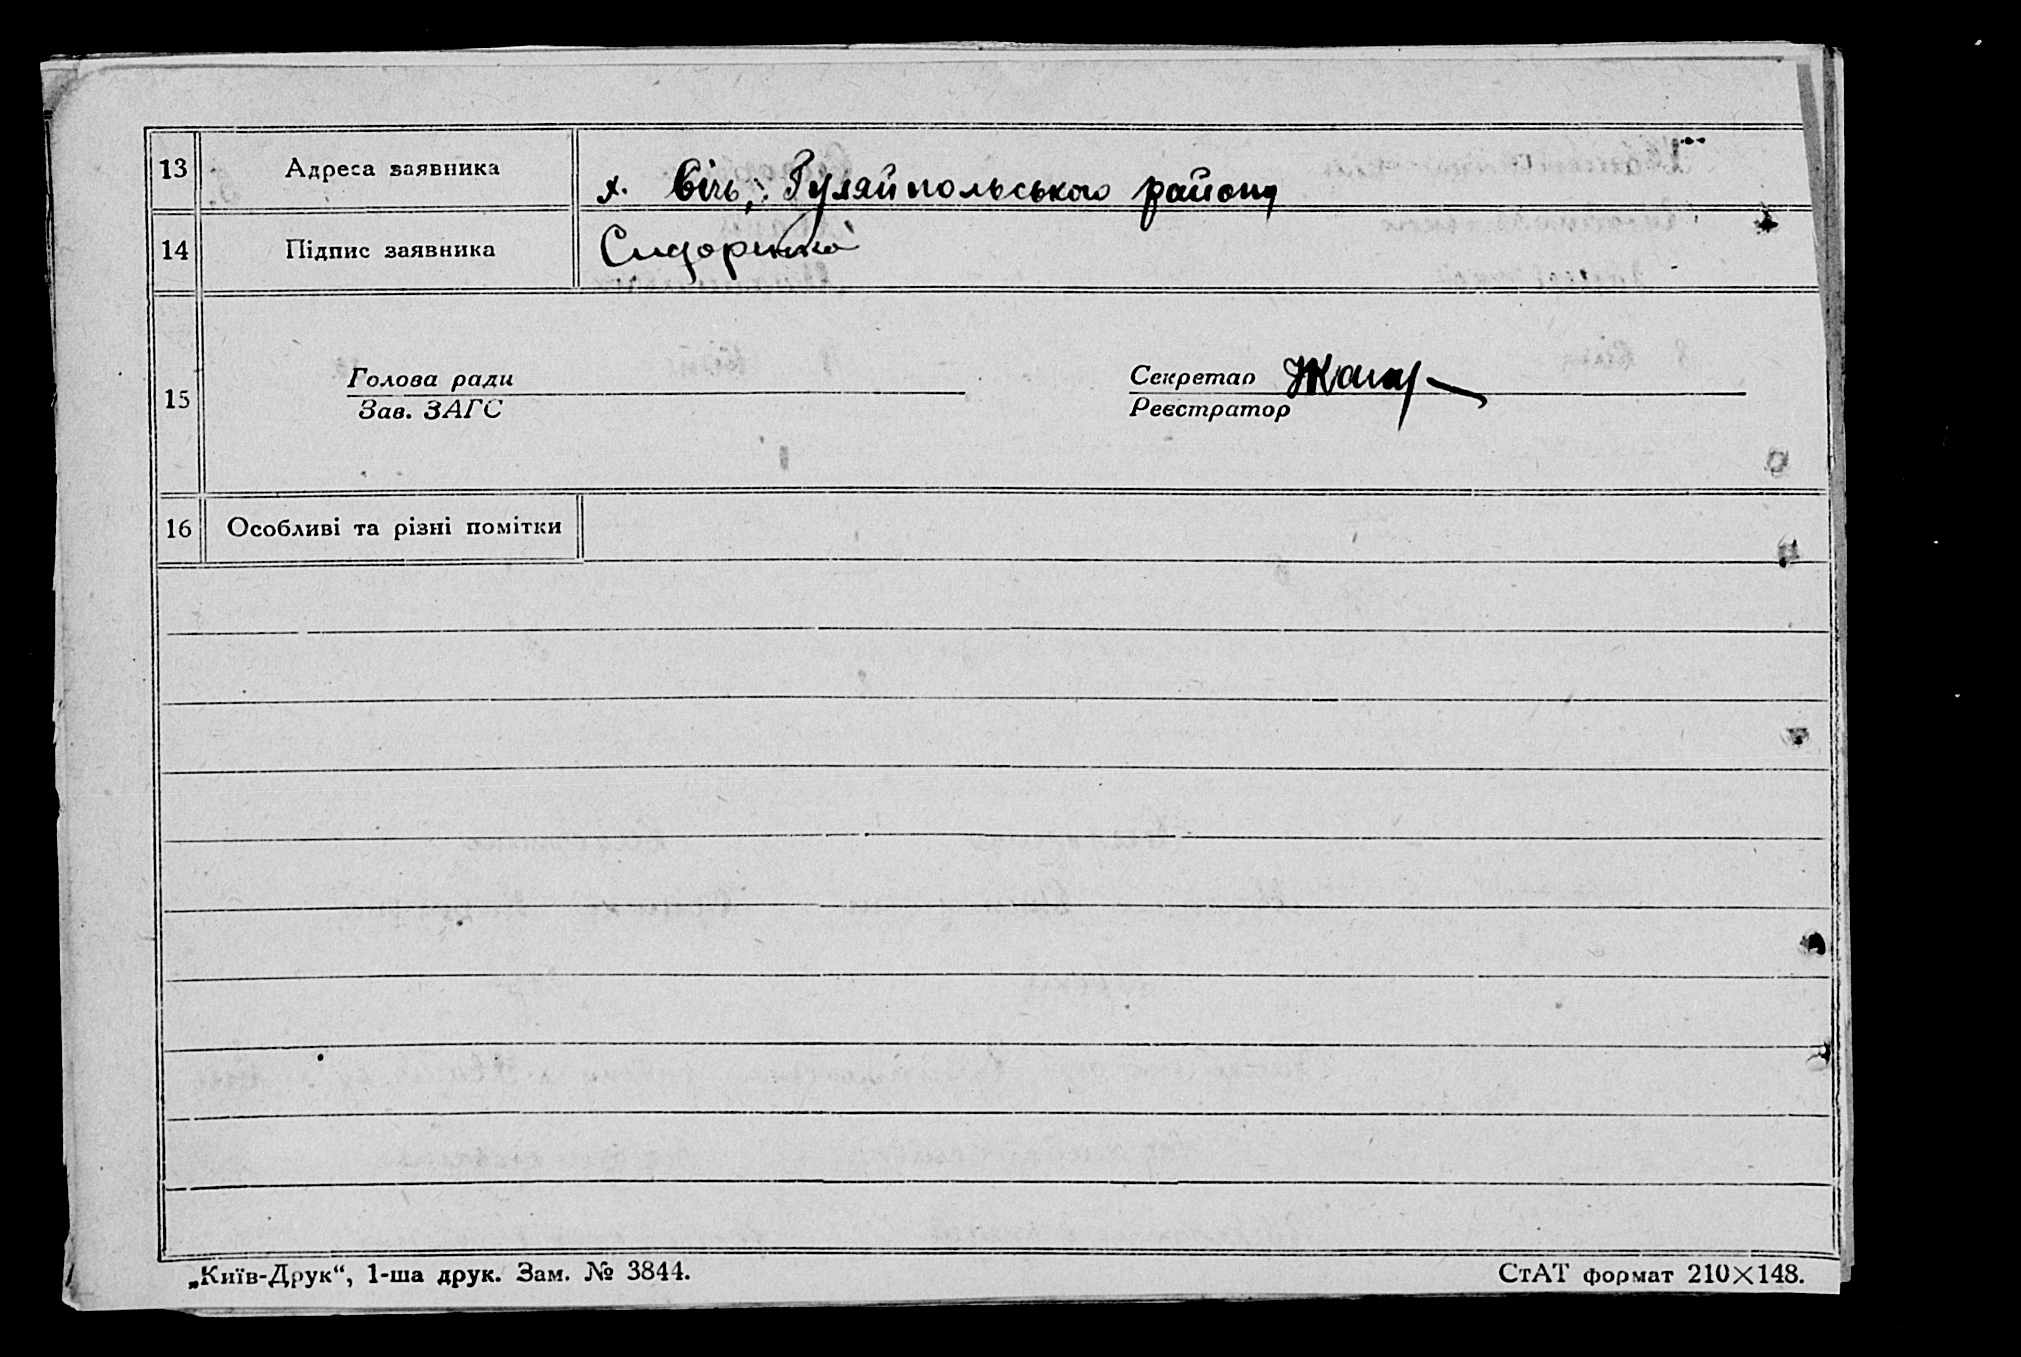 13 Адреса заявника х. Січь, Гуляйпольського району
14 Підпис заявника Сидоренко
15
Голова ради Секретар
Зав. ЗАГС Реєстратор
16 Особливі та різні помітки
„Київ-Друк“, 1-ша друк. Зам. № 3844. СтАТ формат 210×148.